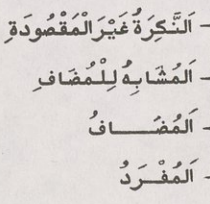 - اَلنَّكِرَةُ غَيْرَ الْمَقْصُودَةِ
- اَلمُشَابِهُ لِلْمُضَافِ
- اَلمُضَـــافُ
- اَلمُفْـرَدُ